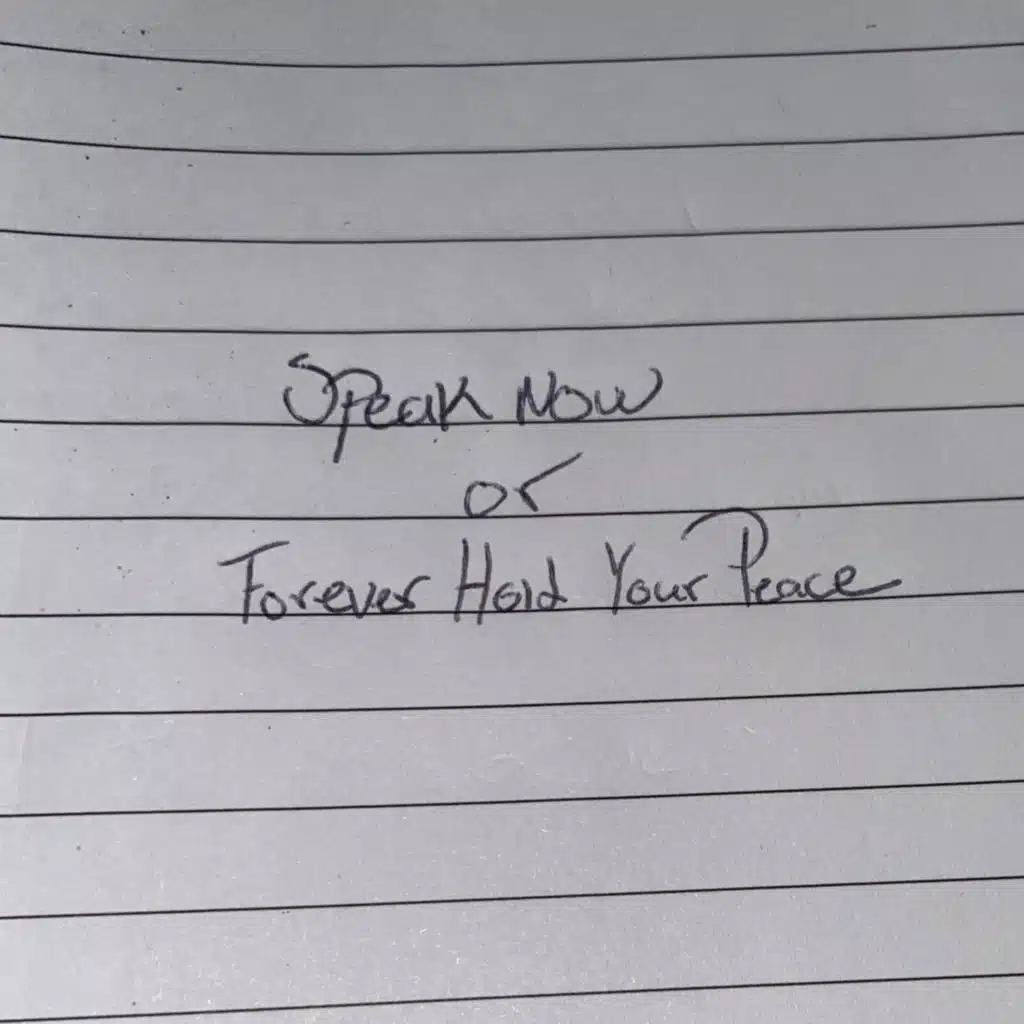 Speak Now
or
Forever Hold Your Peace